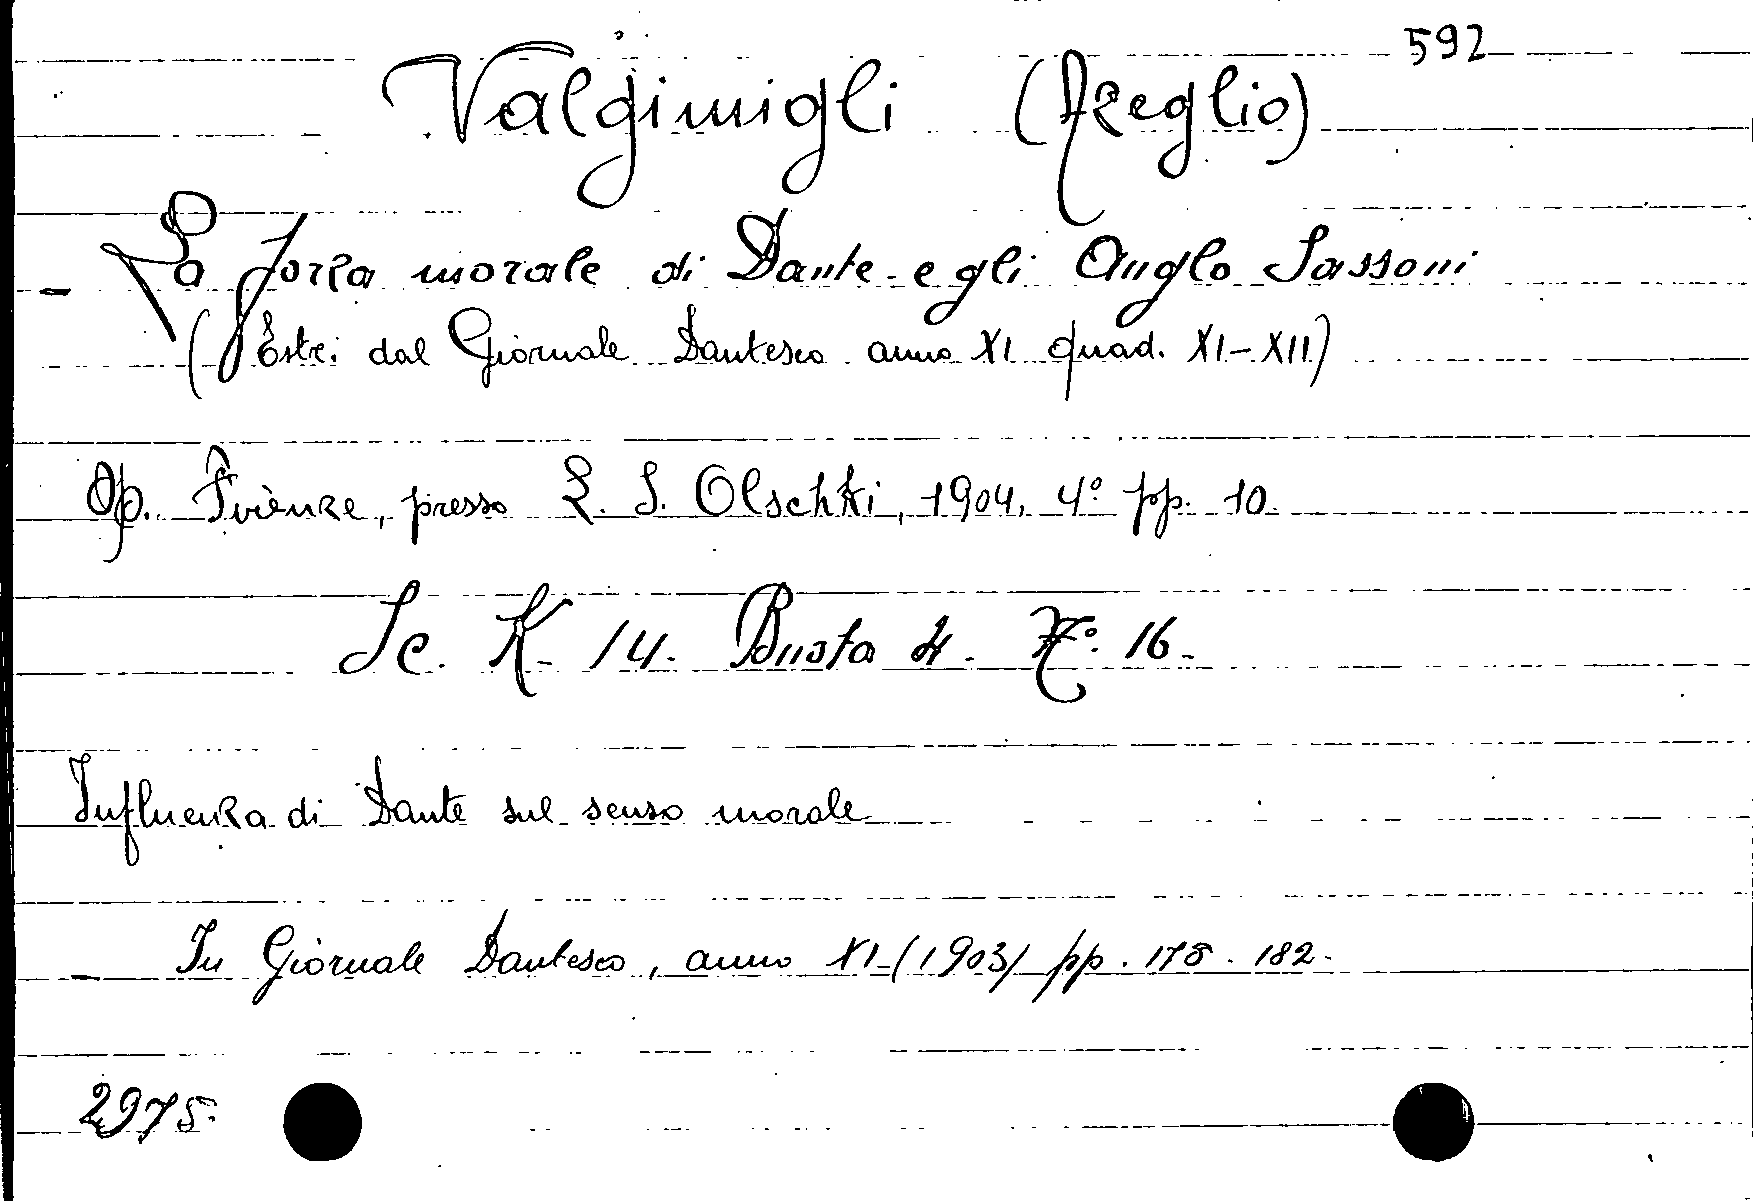 592
Valgimigli (Azeglio)
- La forza morale di Dante e gli Anglo Sassoni
(Estr. dal Giornale Dantesco anno XI quad. XI-XII)
Op. Firenze, presso L. S. Olschki, 1904, 4° pp. 10.
Sc. K. 14. Busta 4. N°. 16.
Influenza di Dante sul senso morale
- In Giornale Dantesco, anno XI (1903) pp. 178-182.
2975.